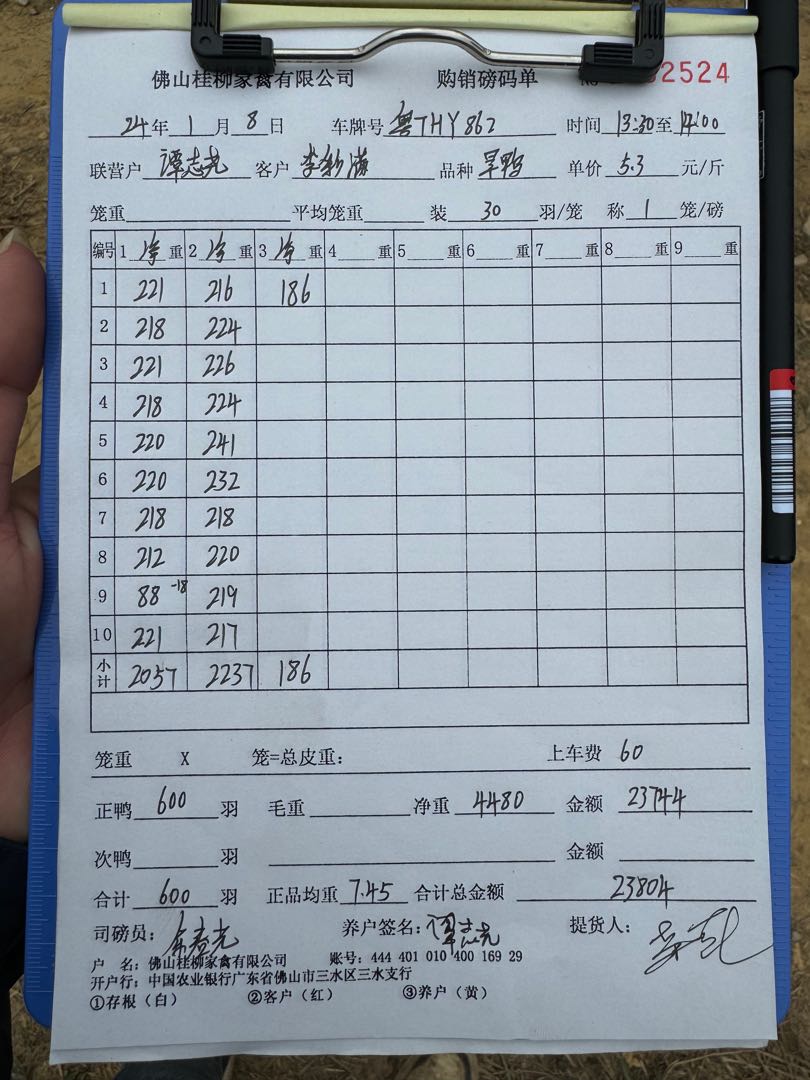 佛山桂柳家禽有限公司 购销磅码单 2524
24年 1月 8日 车牌号 粤THY862 时间 13:30至14:00
联营户 谭志尧 客户 品种 旱鸭 单价 5.3 元/斤
笼重 平均笼重 装 30 羽/笼 称 1 笼/磅
编号 1 净 重 2 净 重 3 净 重 4 重 5 重 6 重 7 重 8 重 9 重
1 221 216 186
2 218 224
3 221 226
4 218 224
5 220 241
6 220 232
7 218 218
8 212 220
9 88 -18 219
10 221 217
小计 2057 2237 186
笼重 X 笼=总皮重: 上车费 60
正鸭 600 羽 毛重 净重 4480 金额 23744
次鸭 羽 金额
合计 600 羽 正品均重 7.45 合计总金额 23804
司磅员: 养户签名: 谭志尧 提货人:
户 名: 佛山桂柳家禽有限公司 账号: 444 401 010 400 169 29
开户行: 中国农业银行广东省佛山市三水区三水支行
①存根(白) ②客户(红) ③养户(黄)